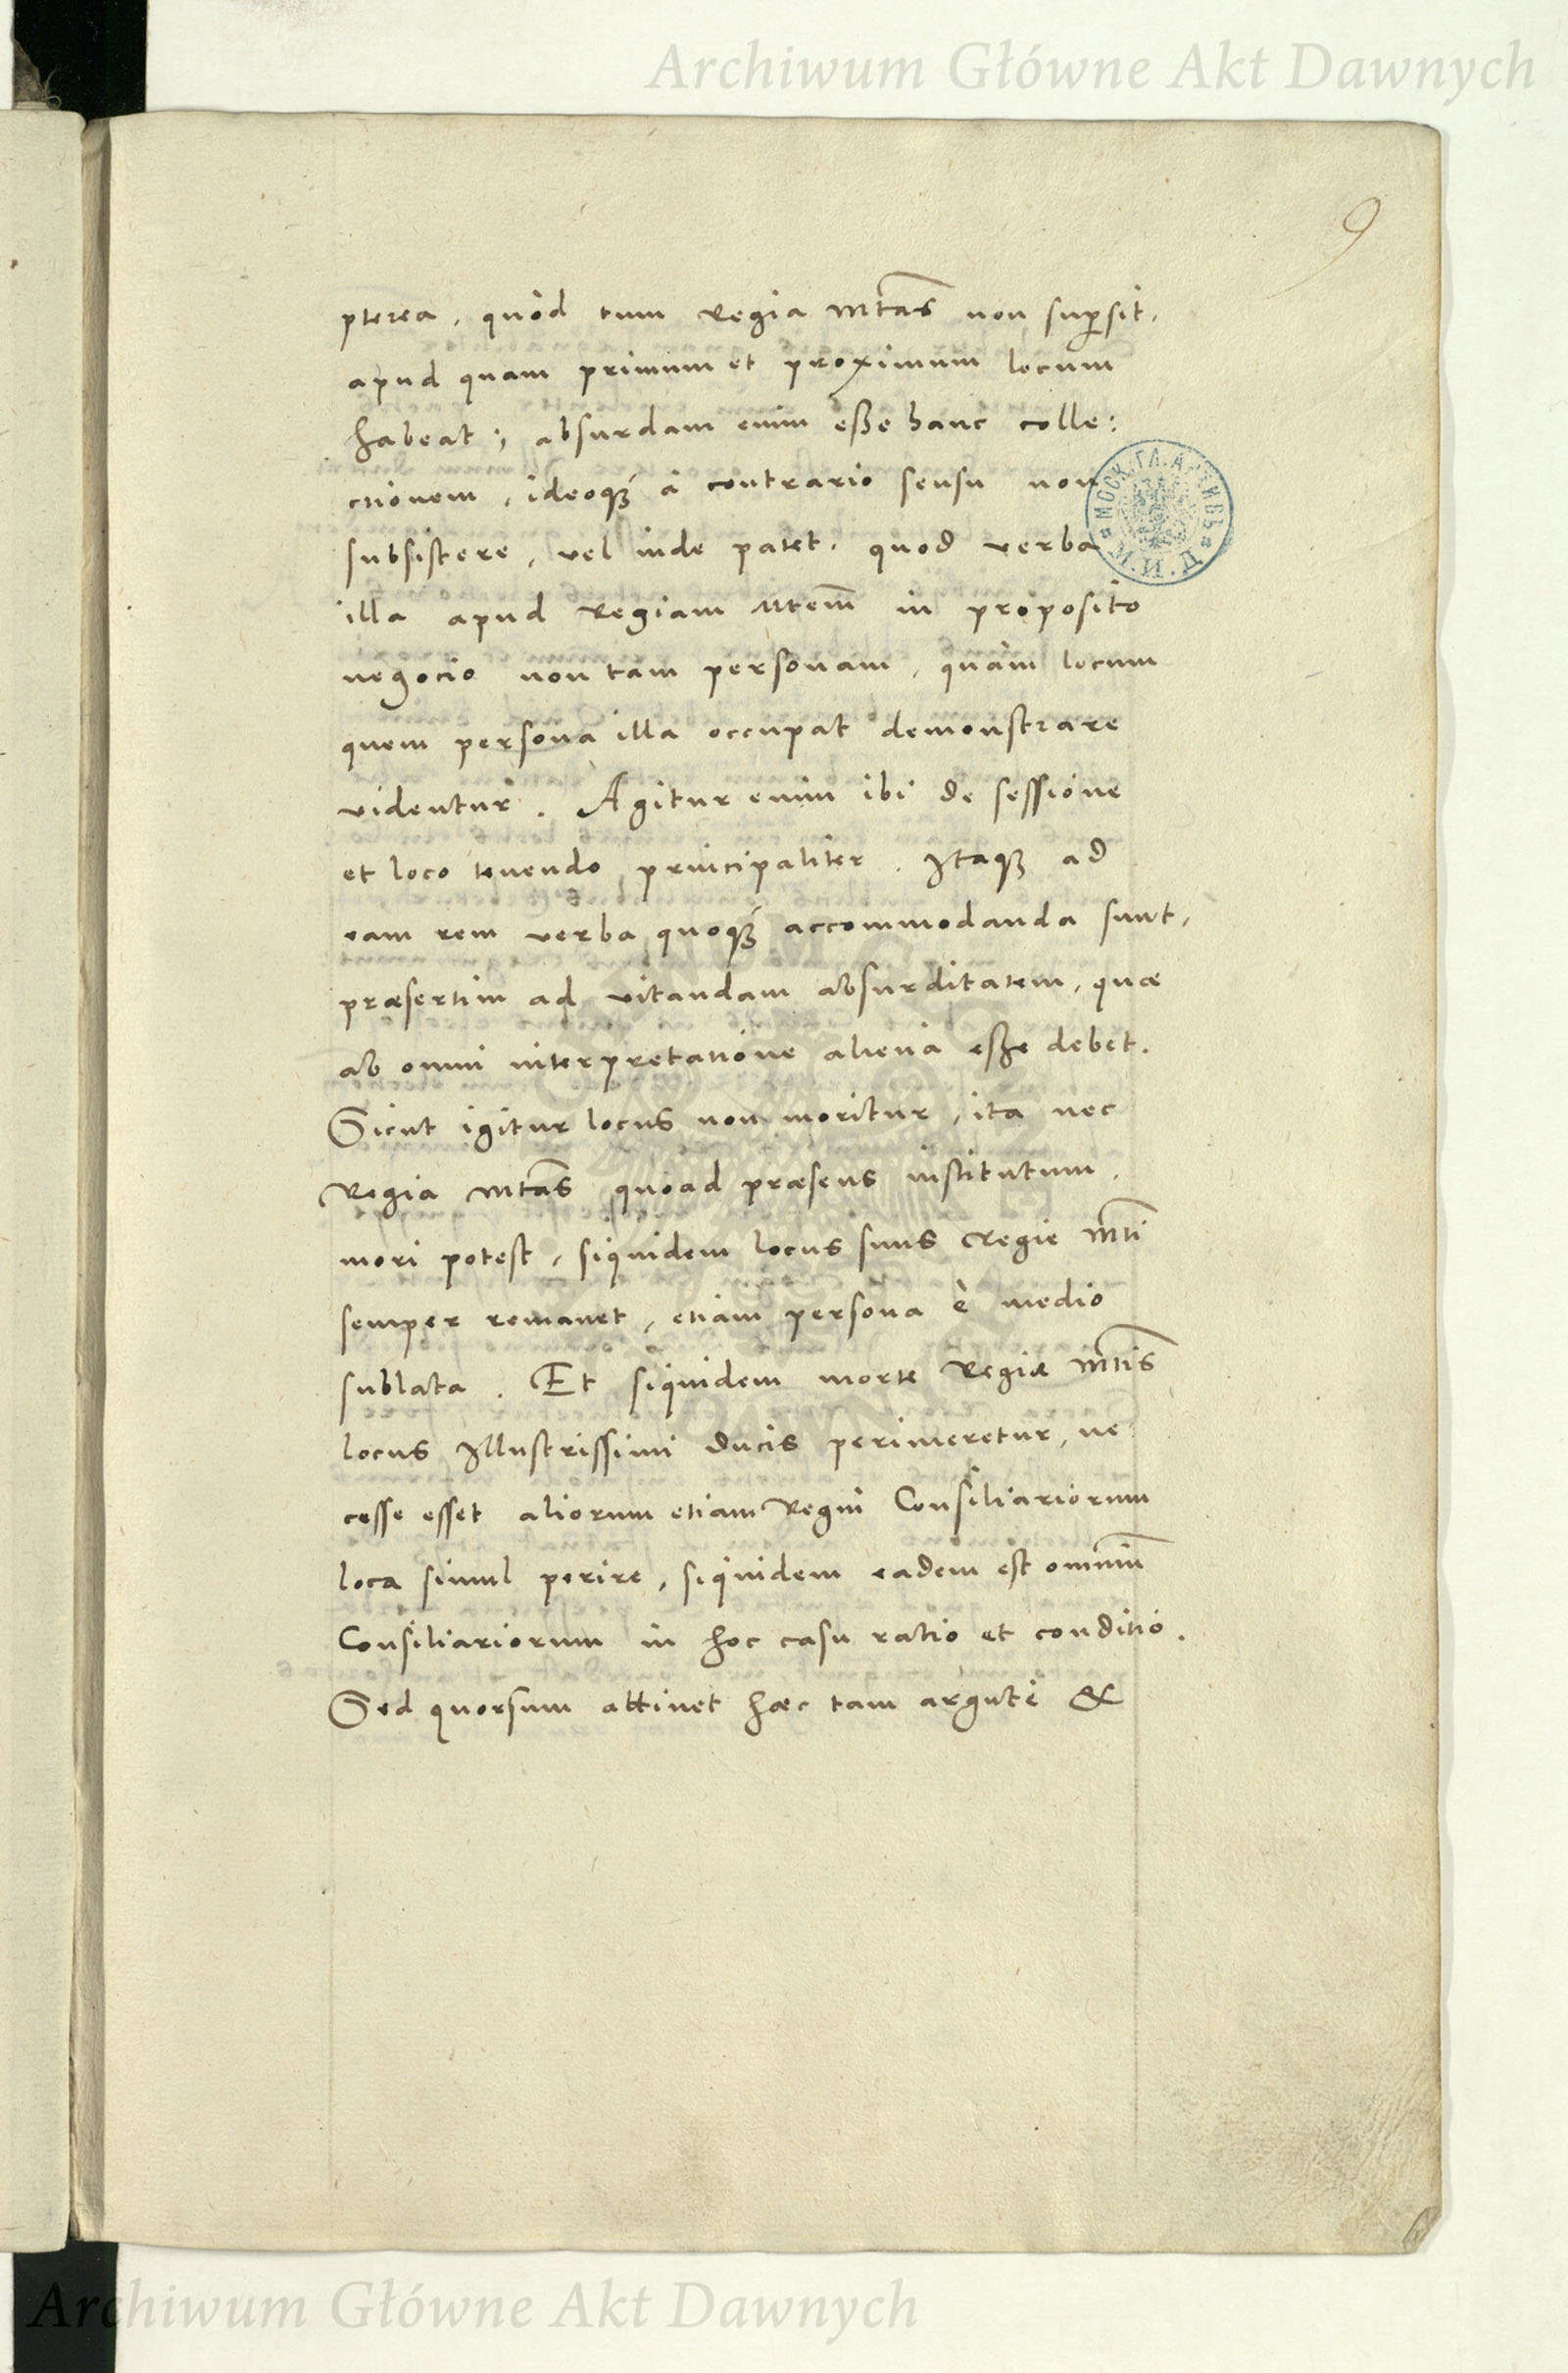 Archiwum Główne Akt Dawnych
9
pterea, quòd tum Regia Mtas non supsit,
apud quam primum et proximum locum
habeat; absurdam enim eße hanc colle:
ctionem, ideoqꝫ à contrario sensu non
subsistere, vel inde patet, quod verba
illa apud Regiam Mtem in proposito
negocio non tam personam, quàm locum
quem persona illa occupat demonstrare
videntur. Agitur enim ibi de sessione
et loco tenendo principaliter. Itaqꝫ ad
eam rem verba quoqꝫ accommodanda sunt,
præsertim ad vitandam absurditatem, quæ
ab omni interpretatione aliena eße debet.
Sicut igitur locus non moritur, ita nec
Regia Mtas quoad præsens institutum,
mori potest, siquidem locus suus Regie Mti
semper remanet, etiam persona è medio
sublata. Et siquidem morte Regiæ Mtis
locus Illustrissimi Ducis perimeretur, ne
cesse esset aliorum etiam Regni Consiliariorum
loca simul perire, siquidem eadem est omnium
Consiliariorum in hoc casu ratio et conditio.
Sed quorsum attinet hæc tam argutè &
Archiwum Główne Akt Dawnych